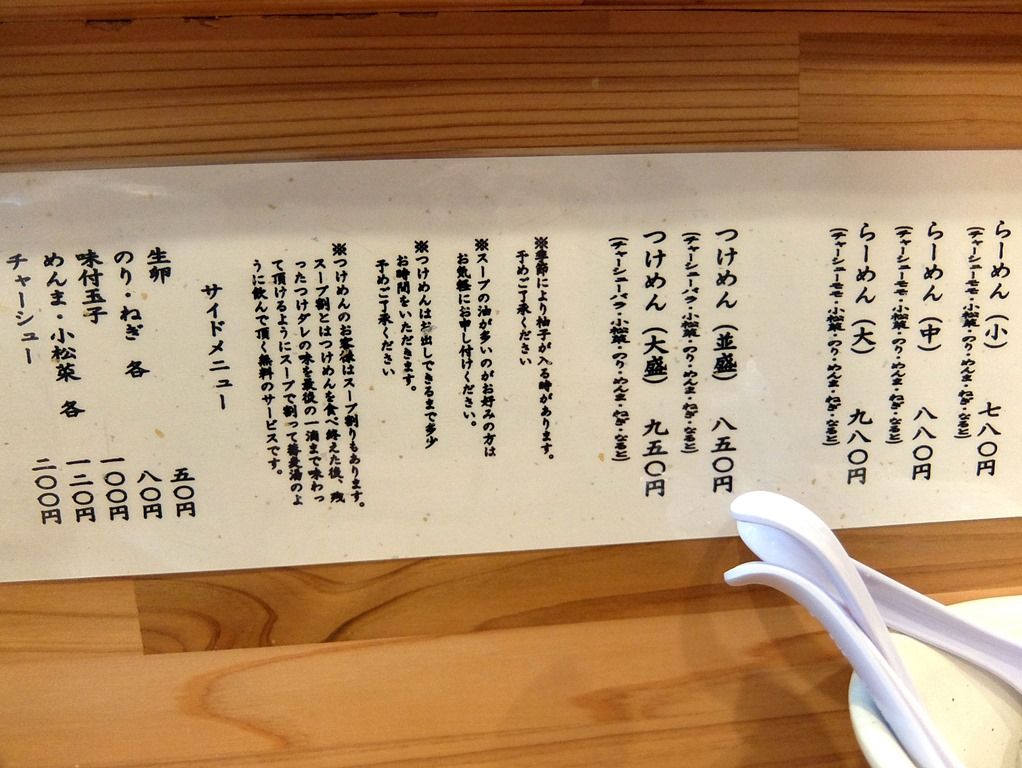 らーめん（小） 七八〇円
（チャーシューモモ・小松菜・のり・めんま・ねぎ・なると）
らーめん（中） 八八〇円
（チャーシューモモ・小松菜・のり・めんま・ねぎ・なると）
らーめん（大） 九八〇円
（チャーシューモモ・小松菜・のり・めんま・ねぎ・なると）
つけめん（並盛） 八五〇円
（チャーシューバラ・小松菜・のり・めんま・ねぎ・なると）
つけめん（大盛） 九五〇円
（チャーシューバラ・小松菜・のり・めんま・ねぎ・なると）
※季節により柚子が入る時があります。
予めご了承ください
※スープの油が多いのがお好みの方は
お気軽にお申し付けください。
※つけめんはお出しできるまで多少
お時間をいただきます。
予めご了承ください
※つけめんのお客様はスープ割りもあります。
スープ割とはつけめんを食べ終えた後、残
ったつけダレの味を最後の一滴まで味わっ
て頂けるようにスープで割って蕎麦湯のよ
うに飲んで頂く無料のサービスです。
サイドメニュー
生卵 五〇円
のり・ねぎ 各 八〇円
味付玉子 一〇〇円
めんま・小松菜 各 一二〇円
チャーシュー 二〇〇円